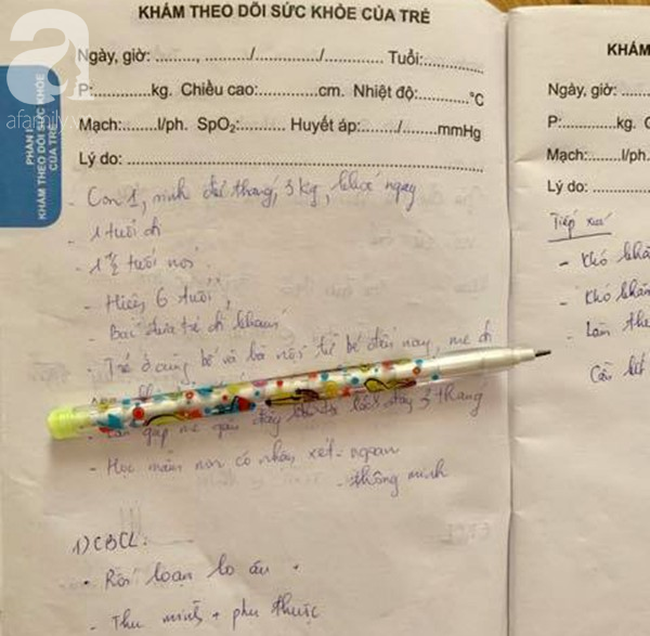 a
afamily.v
PHẦN I
KHÁM THEO DÕI SỨC KHỎE
CỦA TRẺ
KHÁM THEO DÕI SỨC KHỎE CỦA TRẺ
Ngày, giờ: ........., ........../............/............ Tuổi:............
P:............kg. Chiều cao:............cm. Nhiệt độ:............°C
Mạch:.......l/ph. SpO2:......... Huyết áp:......./.......mmHg
Lý do: ............................................................
- Con 1, sinh đủ tháng, 3 kg, khóc ngay
- 1 tuổi đi
- 1 1/2 tuổi nói.
- Hiện 6 tuổi,
- Bà đưa trẻ đi khám
- Trẻ ở cùng bố và bà nội từ bé đến nay, mẹ đi
- Lần gặp mẹ gần đây cách đây 3 tháng
- Học mầm non có nhận xét - ngoan
- thông minh
1) CBCL:
- Rối loạn lo âu.
- Thu mình + phụ thuộc
KHÁM
Ngày, giờ: .......
P:............kg. C
Mạch:.......l/ph.
Lý do: ............
Tiếp xúc
- Khó khăn
- Khó khăn
- Làm the